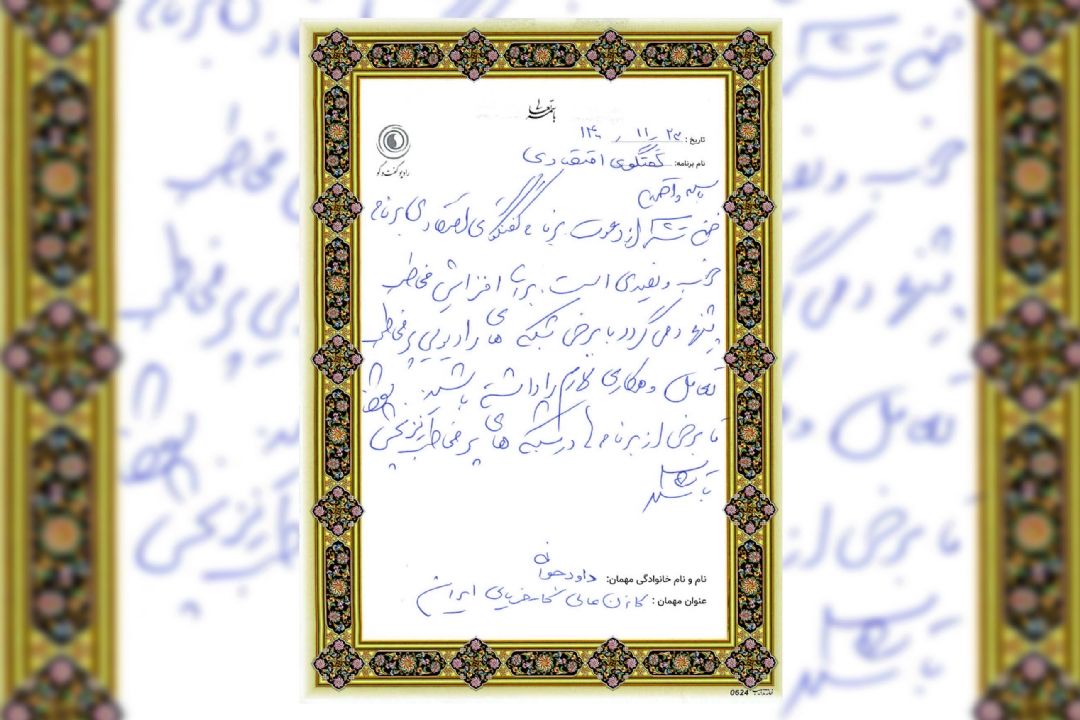 باسمه تعالی
تاریخ: ۱۴۰۰/۱۱/۲۳
رادیو گفت و گو
نام برنامه: گفتگوی اقتصادی
با سلام و احترام
ضمن تشکر از دعوت برنامه گفتگوی اقتصادی برنامه
خوب و مفیدی است. برای افزایش مخاطب
پیشنهاد می گردد با برخی شبکه های رادیویی پر مخاطب
تعامل و همکاری لازم را داشته باشید.
تا برخی از برنامه ها در شبکه های پر مخاطب نیز پخش
نام و نام خانوادگی مهمان: داود
عنوان مهمان: کانون عالی کارفرمایان ایران
0624